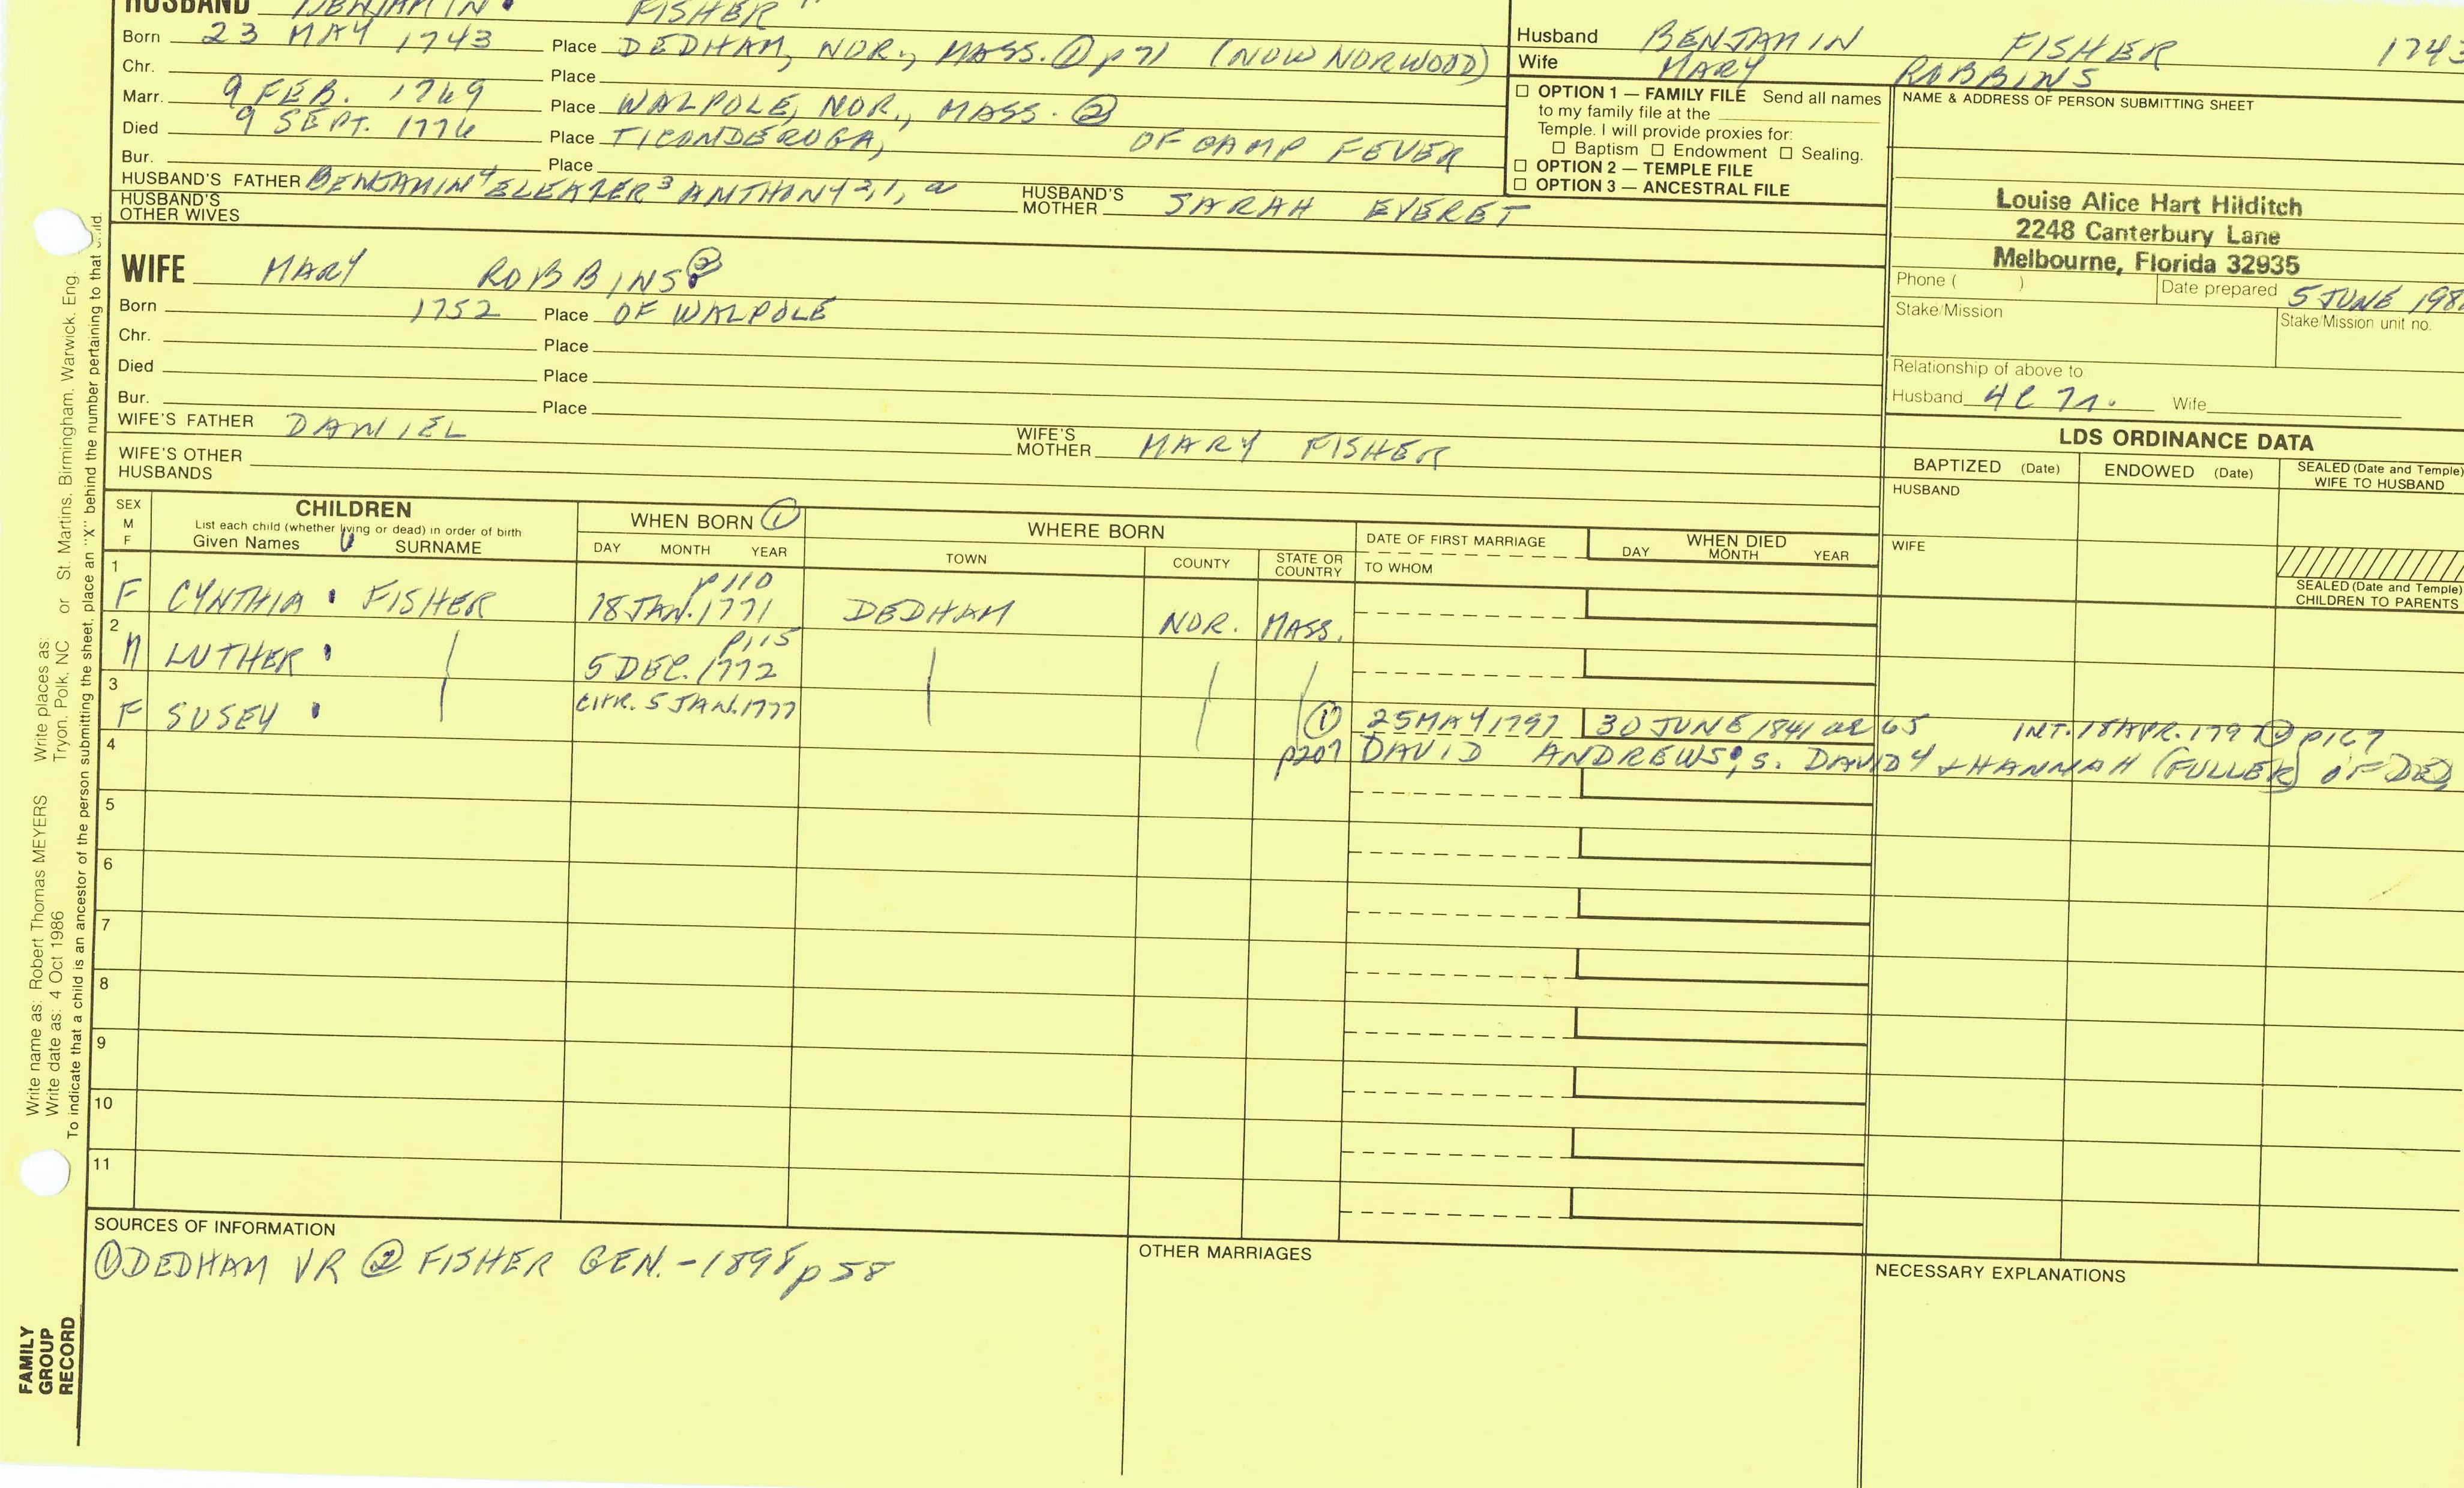 HUSBAND BENJAMIN FISHER
Born 23 MAY 1743 Place DEDHAM, NOR., MASS. ① p 71 (NOW NORWOOD)
Chr. Place
Marr. 9 FEB. 1769 Place WALPOLE, NOR., MASS. ②
Died 9 SEPT. 1776 Place TICONDEROGA, OF CAMP FEVER
Bur. Place
HUSBAND'S FATHER BENJAMIN⁴ ELEAZER³ ANTHONY²,¹,
HUSBAND'S MOTHER SARAH EVERET
HUSBAND'S OTHER WIVES
WIFE MARY ROBBINS ②
Born 1752 Place OF WALPOLE
Chr. Place
Died Place
Bur. Place
WIFE'S FATHER DANIEL
WIFE'S MOTHER MARY FISHER
WIFE'S OTHER HUSBANDS
Husband BENJAMIN FISHER 1743
Wife MARY ROBBINS
☐ OPTION 1 — FAMILY FILE Send all names
to my family file at the
Temple. I will provide proxies for:
☐ Baptism ☐ Endowment ☐ Sealing.
☐ OPTION 2 — TEMPLE FILE
☐ OPTION 3 — ANCESTRAL FILE
NAME & ADDRESS OF PERSON SUBMITTING SHEET
Louise Alice Hart Hilditch
2248 Canterbury Lane
Melbourne, Florida 32935
Phone ( )
Date prepared 5 JUNE 198
Stake/Mission
Stake/Mission unit no.
Relationship of above to
Husband 4C 7r. Wife
LDS ORDINANCE DATA
BAPTIZED (Date) ENDOWED (Date) SEALED (Date and Temple)
WIFE TO HUSBAND
HUSBAND
WIFE
SEALED (Date and Temple)
CHILDREN TO PARENTS
SEX
M
F
CHILDREN
List each child (whether living or dead) in order of birth
Given Names SURNAME
WHEN BORN ①
DAY MONTH YEAR
WHERE BORN
TOWN COUNTY STATE OR COUNTRY
DATE OF FIRST MARRIAGE
TO WHOM
WHEN DIED
DAY MONTH YEAR
1
p 110
F CYNTHIA FISHER 18 JAN. 1771 DEDHAM NOR. MASS.
2
p 115
M LUTHER 5 DEC. 1772
3
F SUSEY CHR. 5 JAN. 1777 ① 25 MAY 1797 30 JUNE 1841 ae 65 INT. 18 APR. 1797 ② p 167
4
p207 DAVID ANDREWS, S. DAVID & HANNAH (FULLER) OF DED
5
6
7
8
9
10
11
SOURCES OF INFORMATION
① DEDHAM VR ② FISHER GEN. - 1898 p 58
OTHER MARRIAGES
NECESSARY EXPLANATIONS
Write name as: Robert Thomas MEYERS Write places as: Tryon, Polk, NC or St. Martins, Birmingham, Warwick, Eng.
Write date as: 4 Oct 1986
To indicate that a child is an ancestor of the person submitting the sheet, place an "X" behind the number pertaining to that child.
FAMILY
GROUP
RECORD